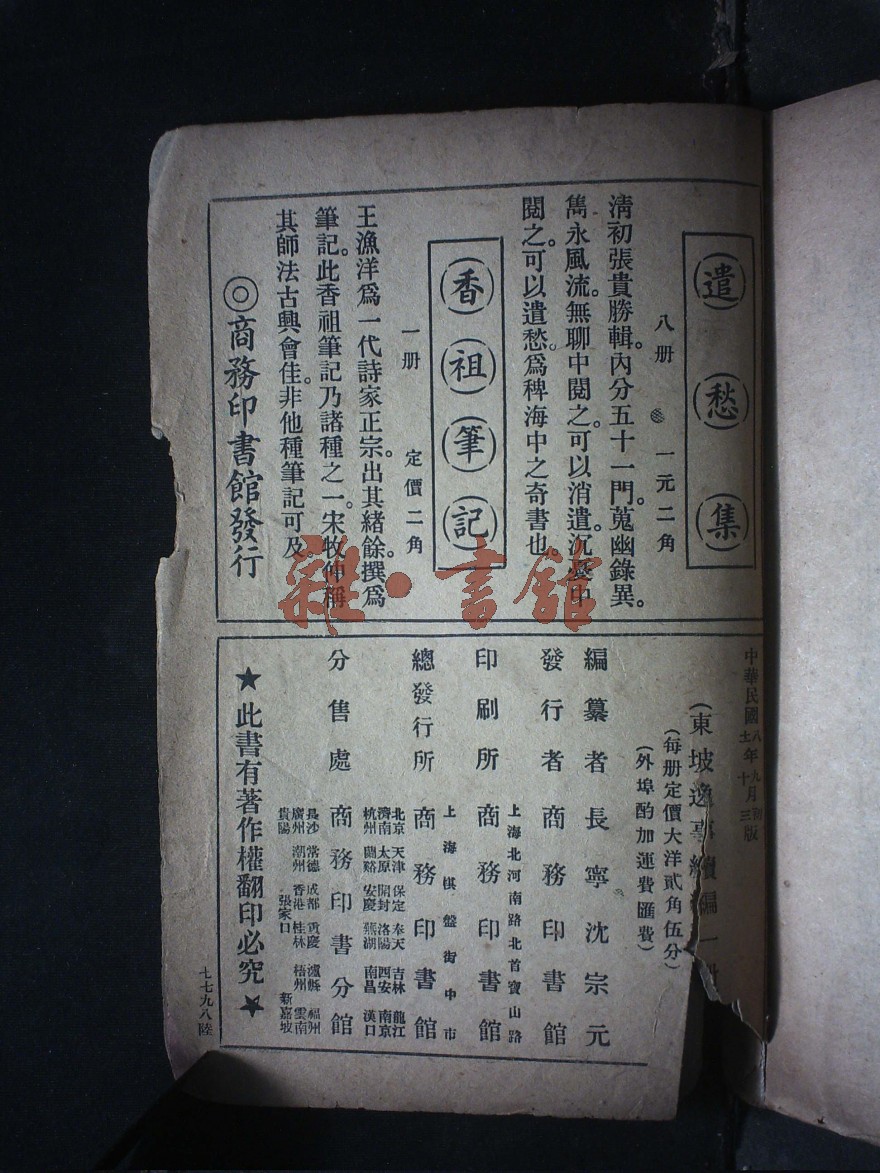 遣愁集
八册 一元二角
清初張貴勝輯。內分五十一門。蒐幽錄異。
雋永風流。無聊中閱之。可以消遣。沉憂中
閱之。可以遣愁。爲稗海中之奇書也。
香祖筆記
一册 定價二角
王漁洋爲一代詩家正宗。出其緒餘。撰爲
筆記。此香祖筆記乃諸種之一。宋牧仲稱
其師法古興會佳。非他種筆記可及。
◎商務印書館發行
雜·書館
中華民國八年九月初版
十三版
(東坡逸事續編一冊
(每册定價大洋貳角伍分)
(外埠酌加運費匯費)
編纂者 長寧沈宗元
發行者 商務印書館
上海北河南路北首寶山路
印刷所 商務印書館
上海棋盤街中市
總發行所 商務印書館
北京 天津 保定 奉天 吉林 龍江
濟南 太原 開封 洛陽 西安 南京
杭州 蘭谿 安慶 蕪湖 南昌 漢口
分售處 商務印書分館
長沙 常德 成都 重慶 瀘縣 福州
廣州 潮州 香港 桂林 梧州 雲南
貴陽 張家口 新嘉坡
★此書有著作權翻印必究★
七七九八陸